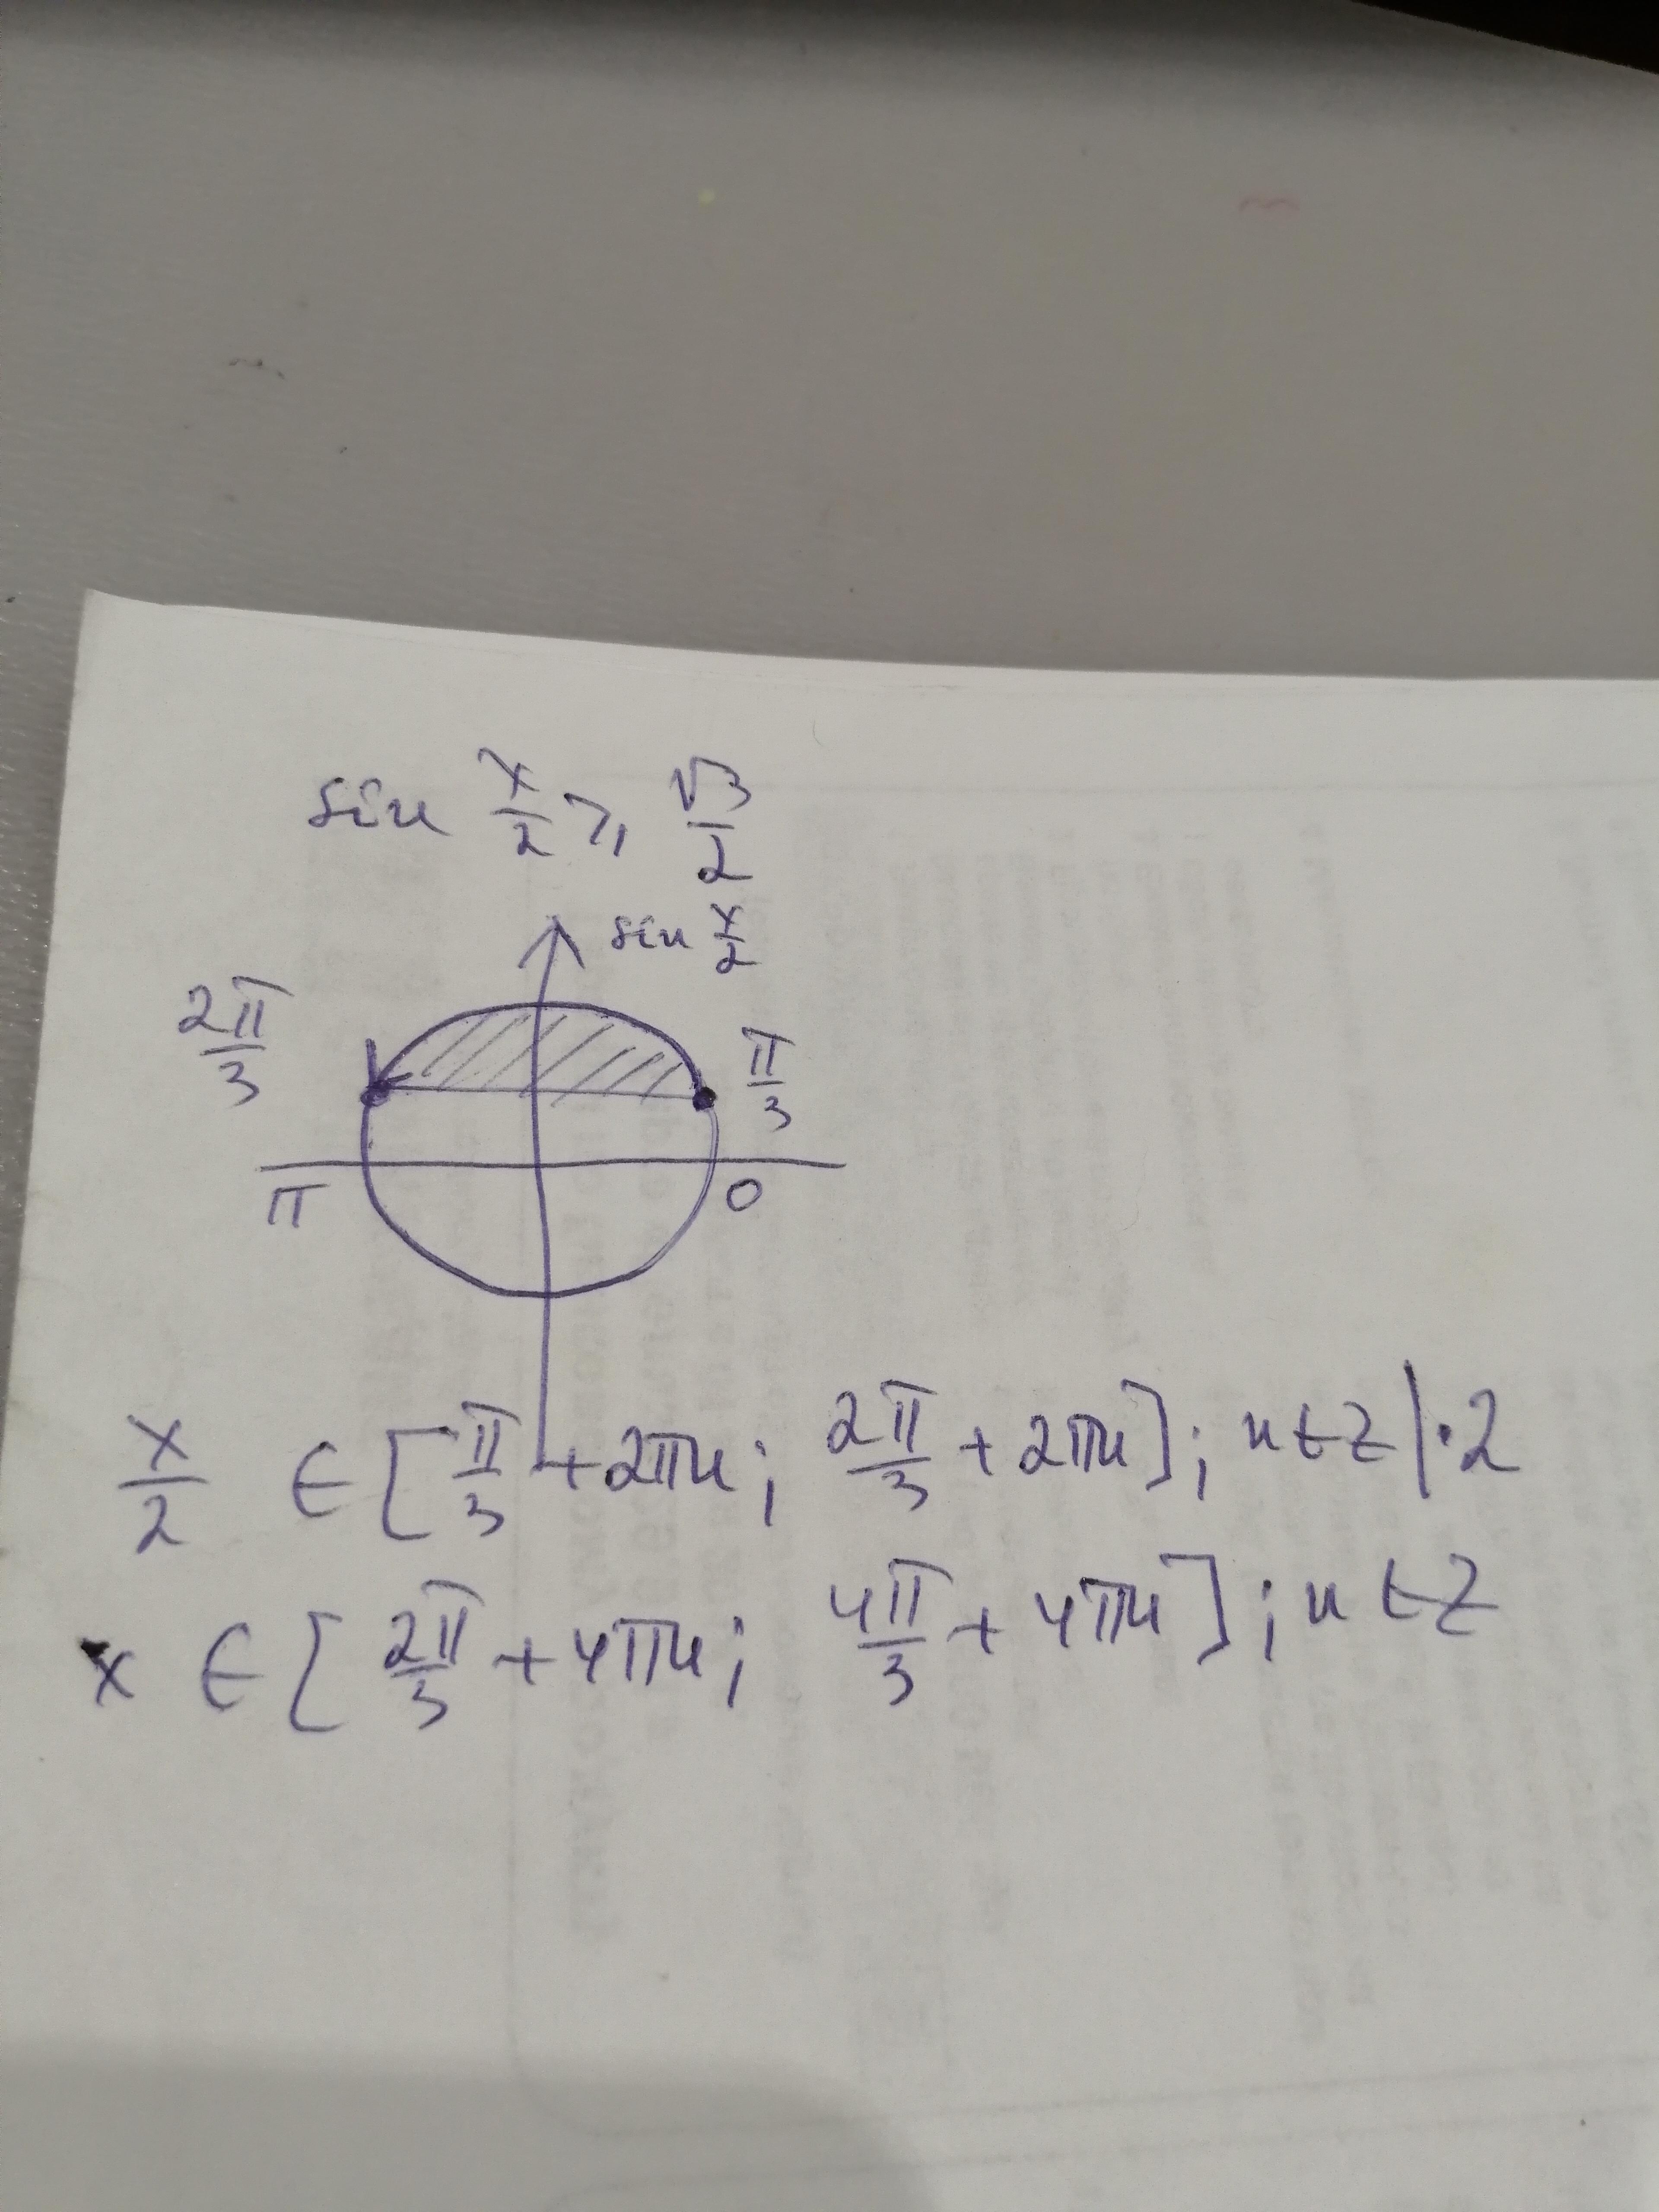 sin x/2 ⩾ √3/2
sin x/2
2π/3
π/3
π
0
x/2 ∈ [π/3 + 2πn; 2π/3 + 2πn]; n ∈ Z | · 2
x ∈ [2π/3 + 4πn; 4π/3 + 4πn]; n ∈ Z